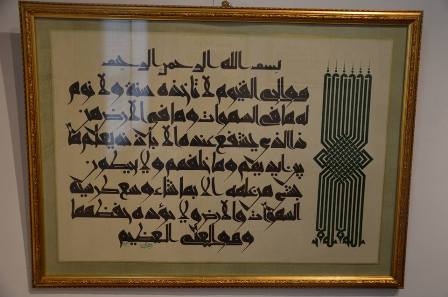 بسم الله الرحمن الرحيم
هو الحي القيوم لا تأخذه سنة ولا نوم
له ما في السموات وما في الأرض من
ذا الذي يشفع عنده إلا بإذنه يعلم ما
بين أيديهم وما خلفهم ولا يحيطون
بشئ من علمه إلا بما شاء وسع كرسيه
السموات والأرض ولا يؤده حفظهما
وهو العلي العظيم